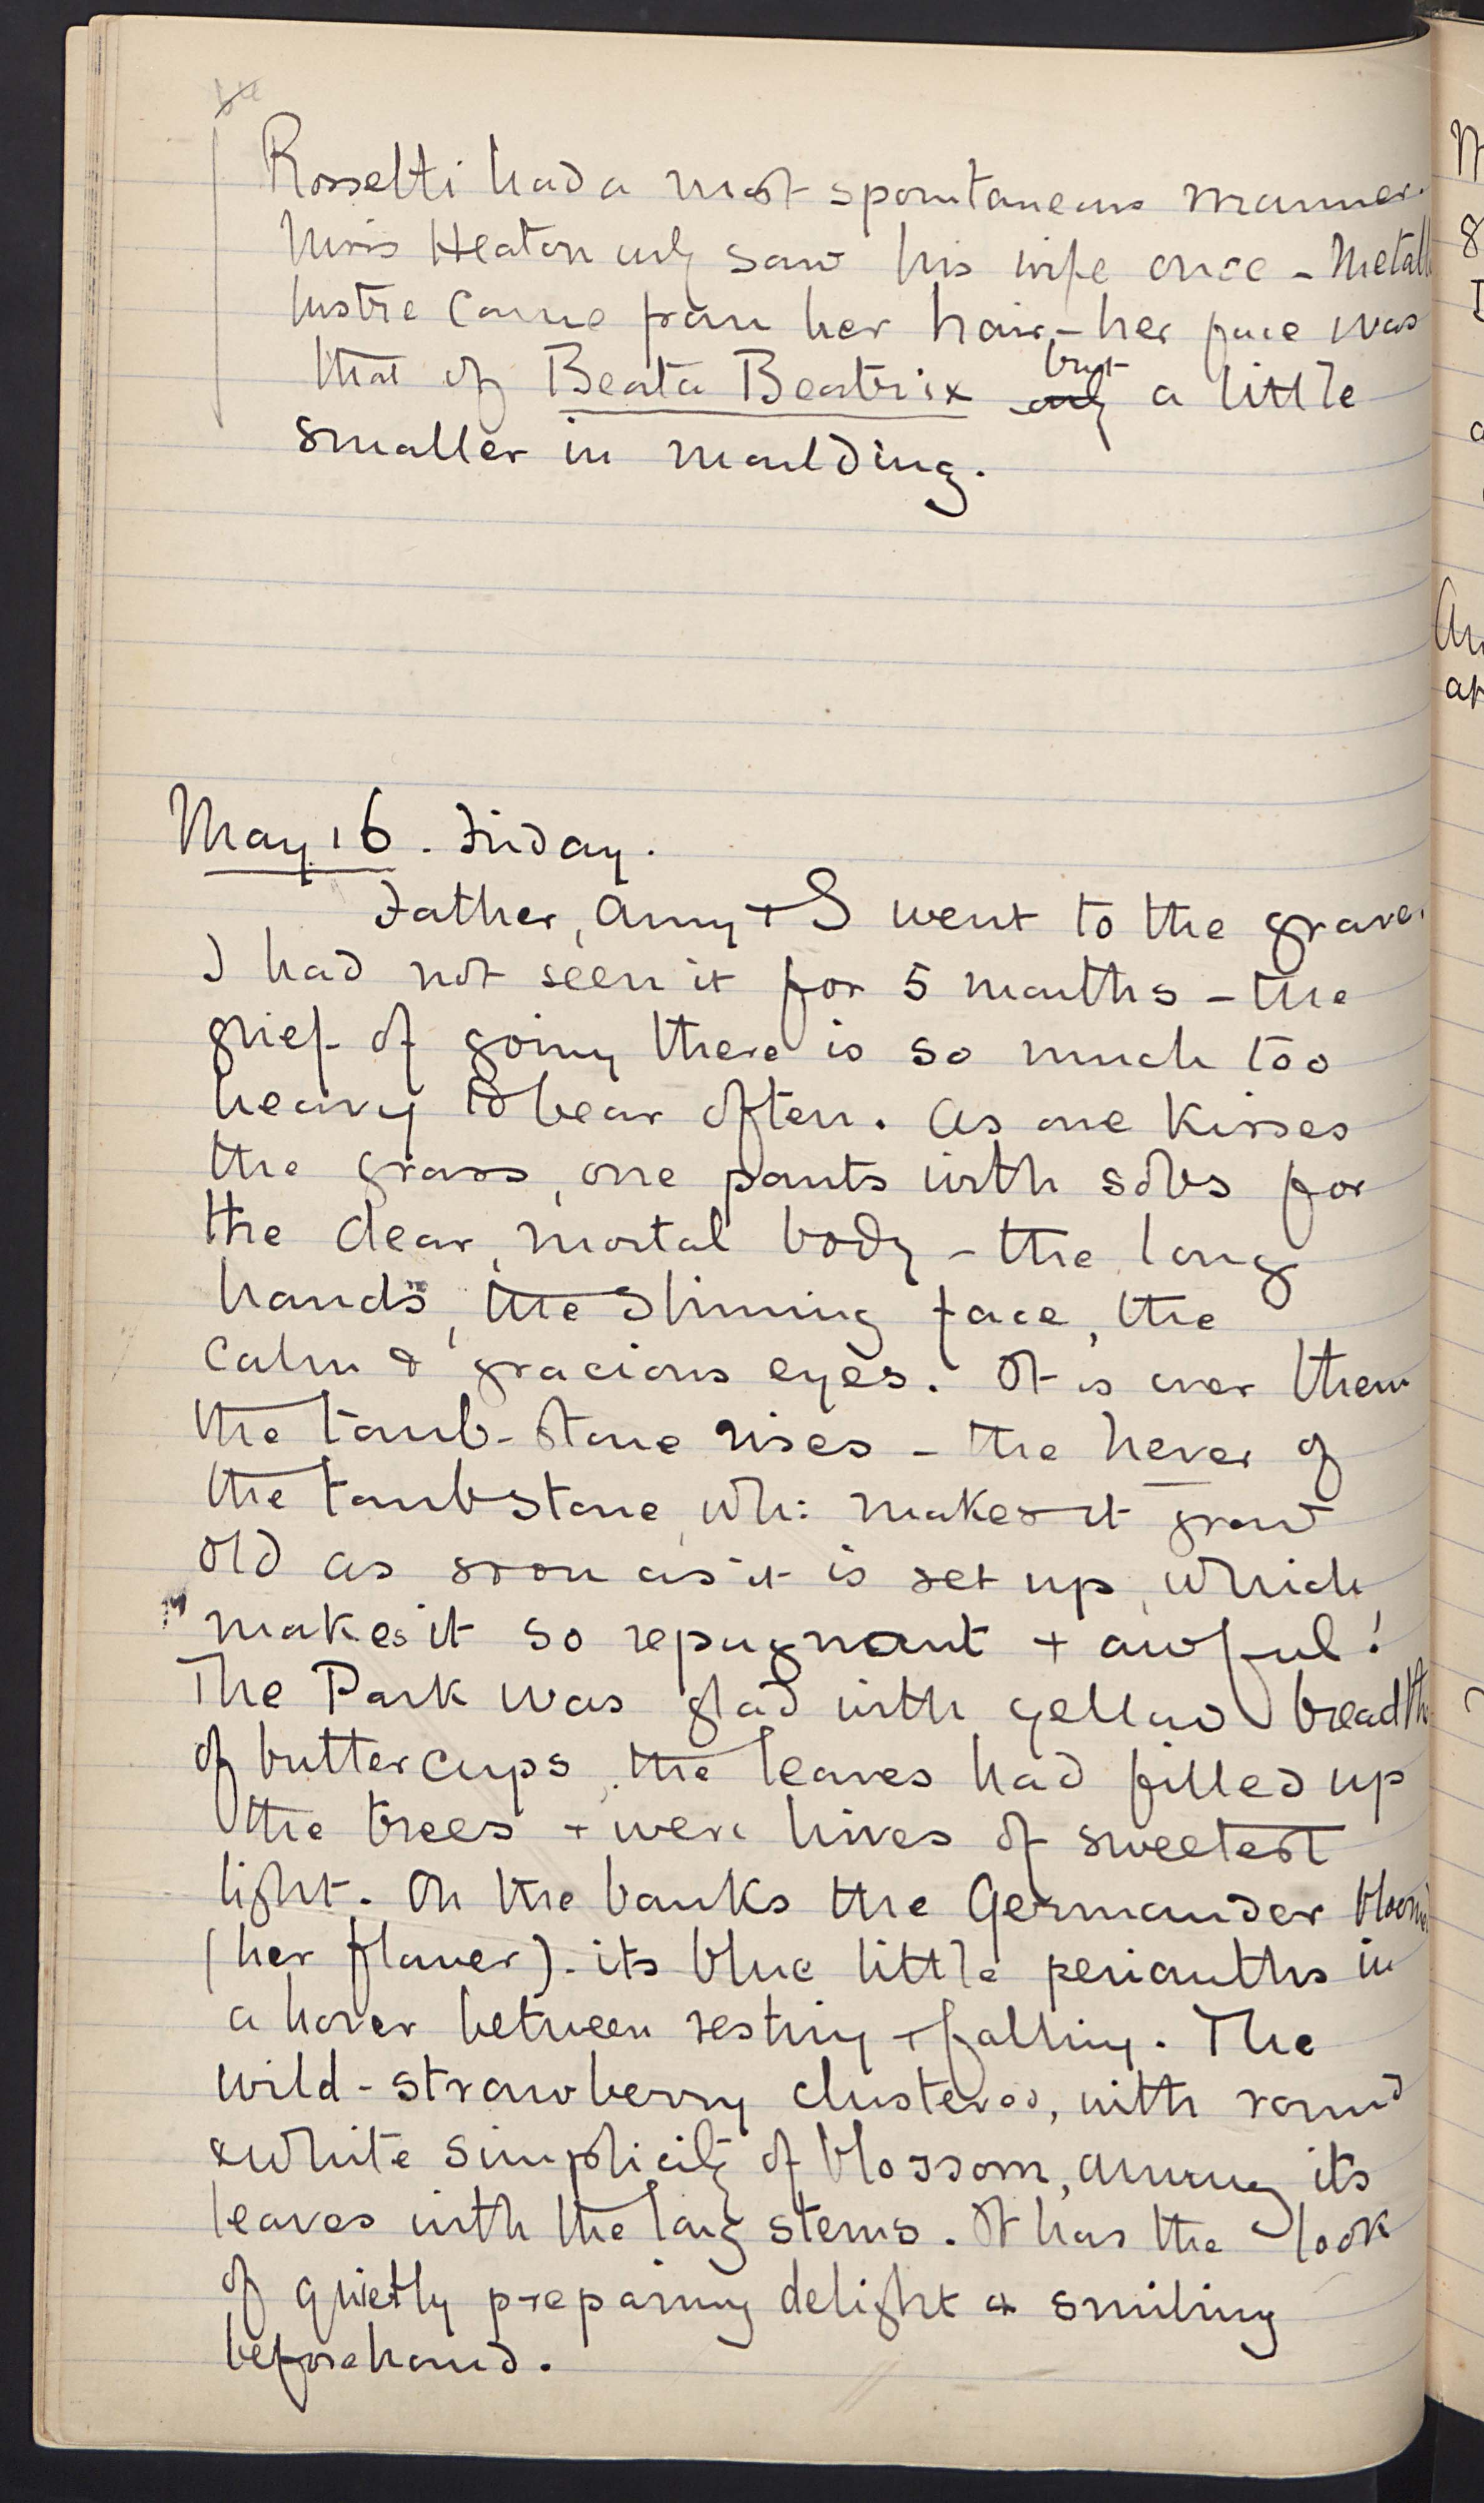 Rossetti had a most spontaneous manner.
Miss Heaton only saw his wife once – Metall
lustre came from her hair – her face was
that of Beata Beatrix only but a little
smaller in moulding.
May 16. Friday.
Father, Amy + I went to the grave.
I had not seen it for 5 months – the
grief of going there is so much too
heavy to bear often. As one kisses
the grass, one pants with sobs for
the dear, mortal body – the long
hands, the shining face, the
calm & gracious eyes. It is over them
the tomb-stone rises – the never of
the tombstone, wh: makes it grow
old as soon as it is set up, which
makes it so repugnant + awful!
The Park was glad with yellow breadth
of buttercups, the leaves had filled up
the trees + were hives of sweetest
light. On the banks the Germander bloomed
(her flower). its blue little perianths in
a hover between resting + falling. The
wild-strawberry clustered, with round
& white simplicity of blossom, among its
leaves with the long stems. It has the look
of quietly preparing delight & smiling
beforehand.